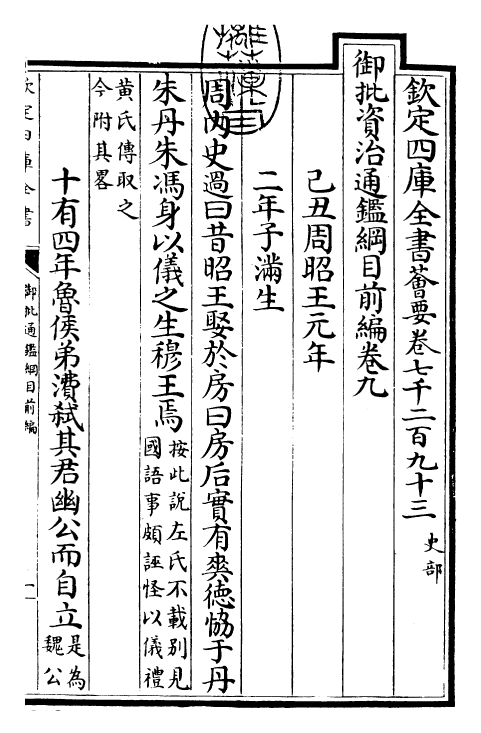 欽定四庫全書薈要卷七千二百九十三
史部
御批資治通鑑綱目前編卷九
己丑周昭王元年
二年子滿生
周內史過曰昔昭王娶於房曰房后實有爽德恊于丹
朱丹朱馮身以儀之生穆王焉
按此說左氏不載别見
國語事頗誣怪以儀禮
黄氏傳取之
今附其畧
十有四年魯侯弟㵒弑其君幽公而自立
是為
魏公
欽定四庫全書
御批通鑑綱目前編
一